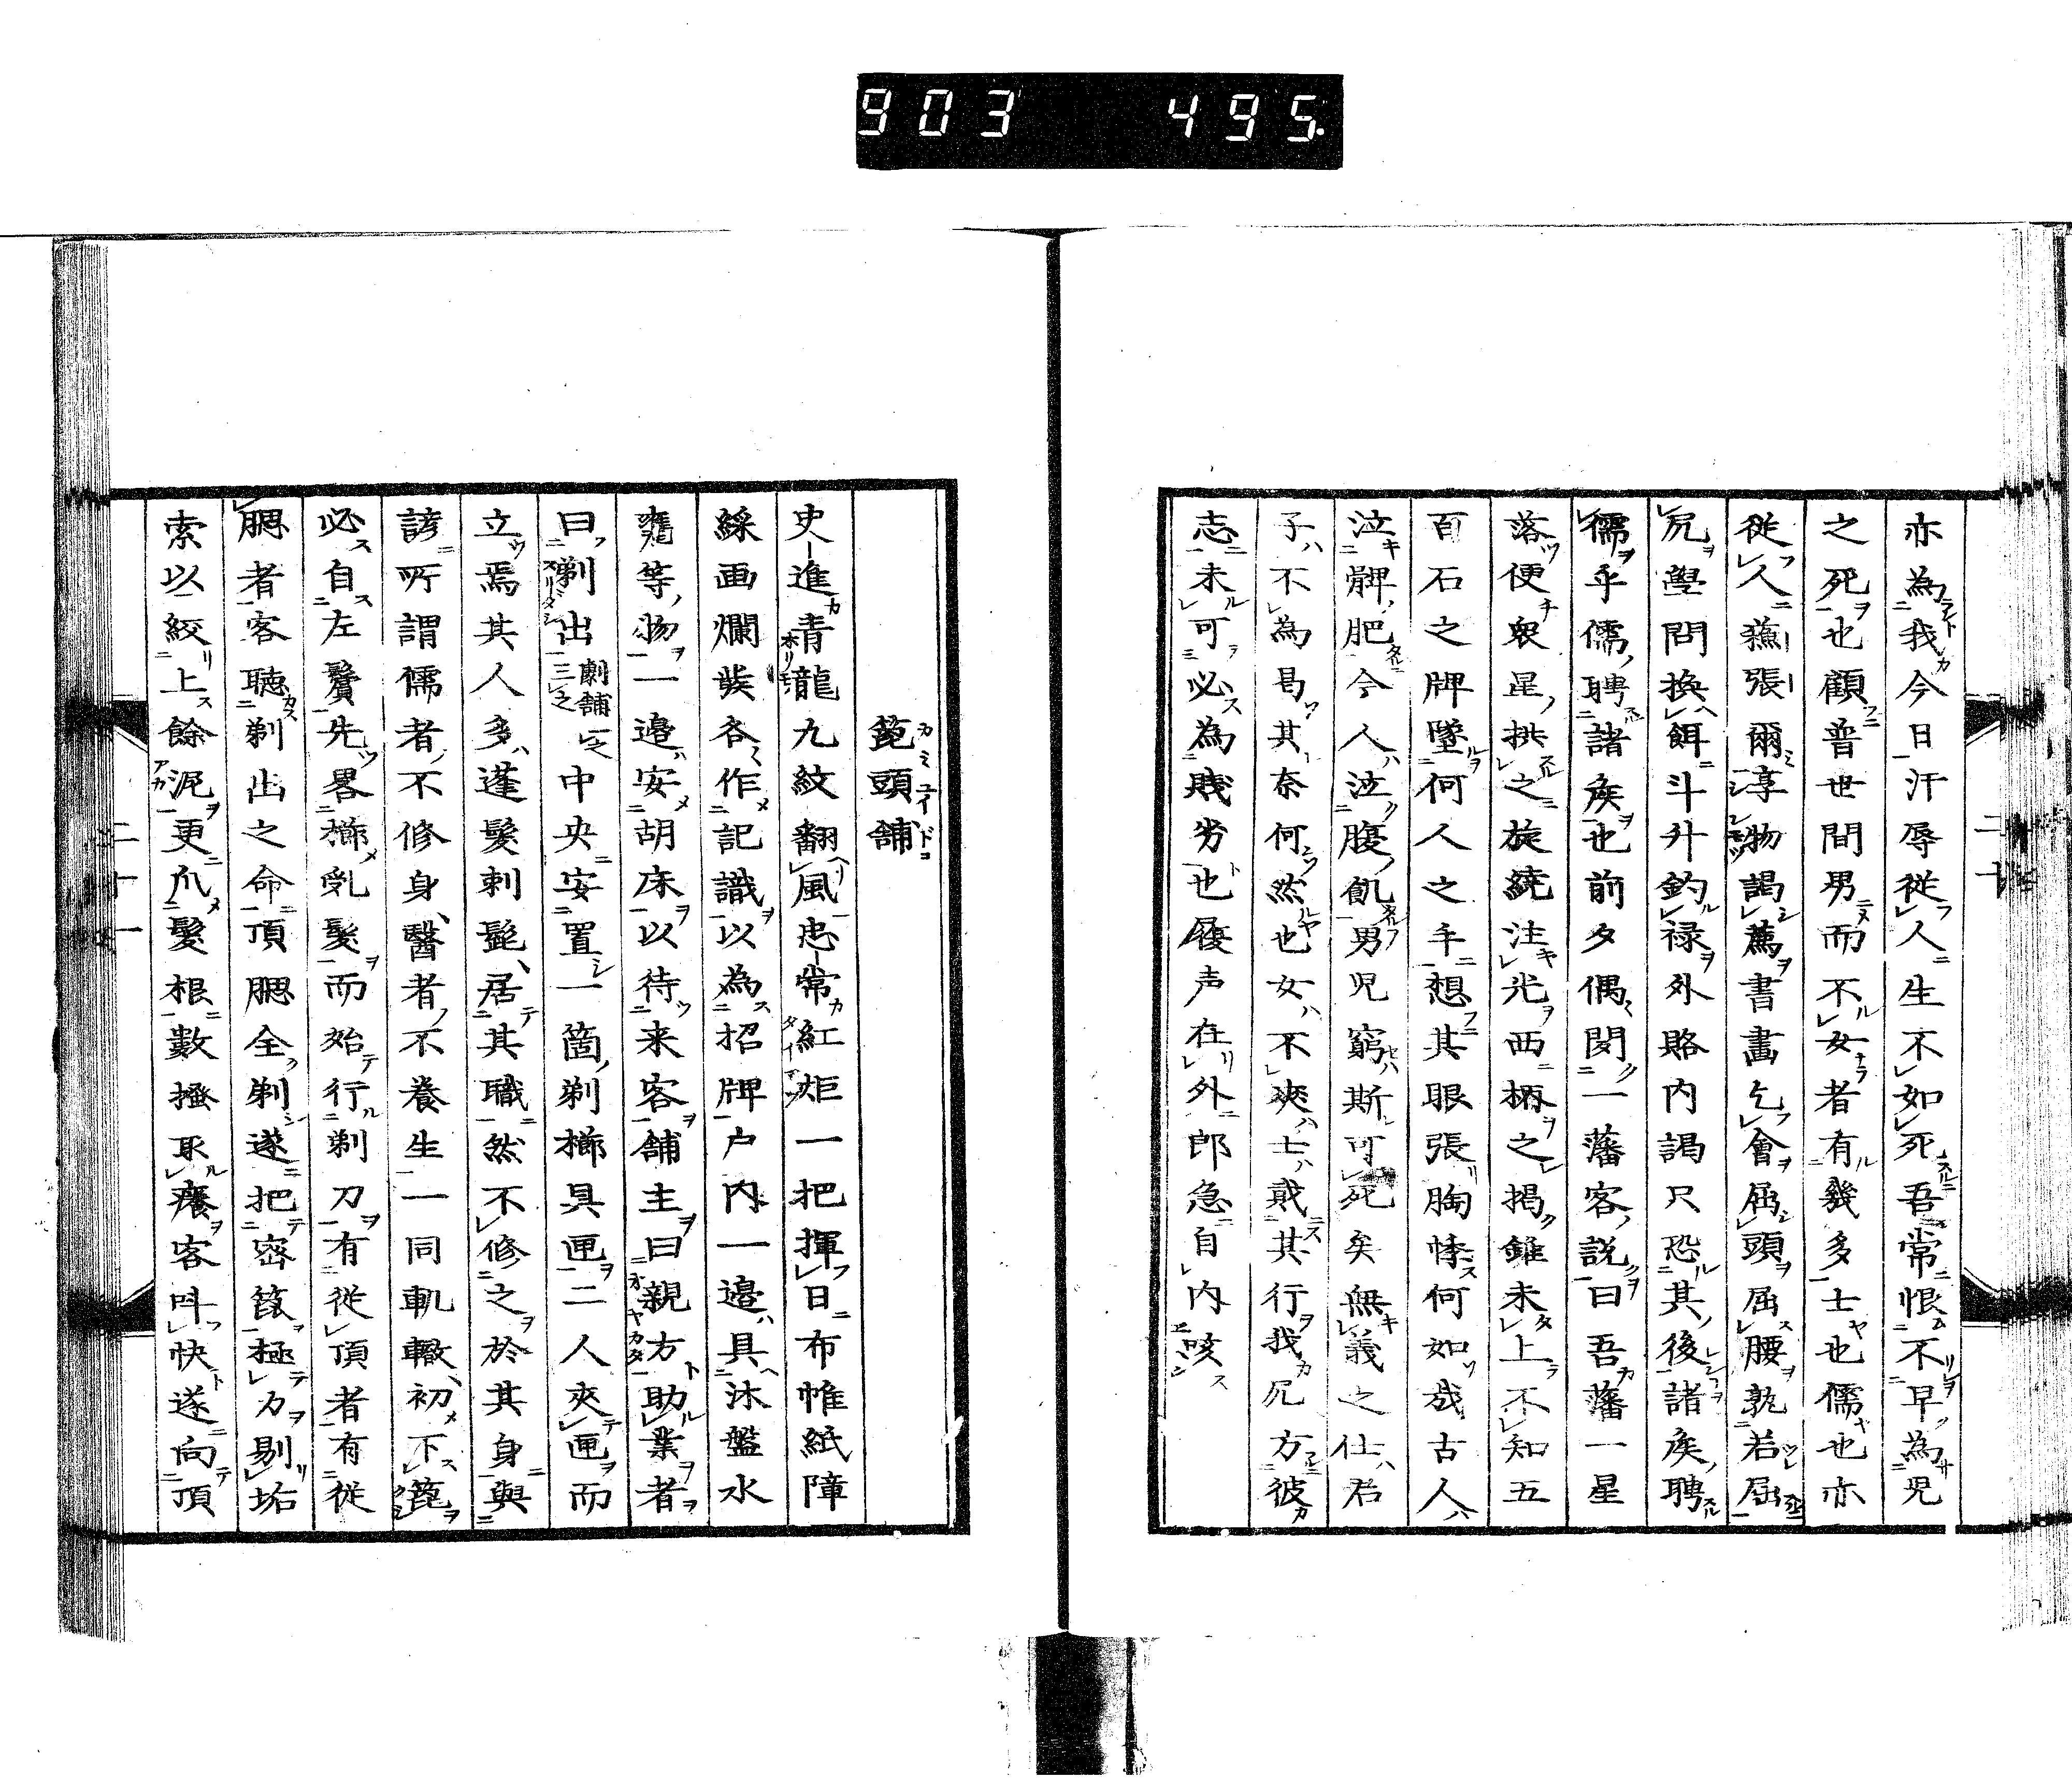 903 495
亦為我今日汗辱從人生不如死吾常恨不早為児
之死也顧普世間男而不女者有幾多士也儒也亦
従人蕕張爾享物謁薦書畫乞會屈頭屈腰孰若屈
尻學問換餌斗升釣禄外賂内謁只恐其後諸矦聘
儒乎儒聘諸矦也前夕偶閔一藩客説曰吾藩一星
落便衆星拱之旋繞注光西柄之掲錐未上不知五
百石之牌墜何人之手想其眼張胸悸何如哉古人
泣髀肥今人泣腹飢男児窮斯可死矣無義之仕君
子不為曷其奈何然也女不爽士貳其行我尻方彼
志未可必為賎劣也履声在外郎急自内咳
二十
箆頭舗
史進青龍九紋翻風忠常紅炬一把揮日布帷紙障
綵画爛裝各作記識以為招牌戸内一邉具沐盤水
竈等物一邉安胡床以待来客舗主曰親方助業者
曰剃出劇舗三之一之中央安置一箇剃櫛具匣二人夾匣而
立焉其人多蓬髮剌髭居其職然不修之於其身與
諺所謂儒者不修身醫者不養生一同軌轍初下箆
必自左鬢先畧櫛乱髮而始行剃刀有従頂者有従
腮者客聴剃出之命頂腮全剃遂把宻箆極力剔垢
索以絞上餘泥更爪髮根數搔取癢客叫快遂向頂
二十一